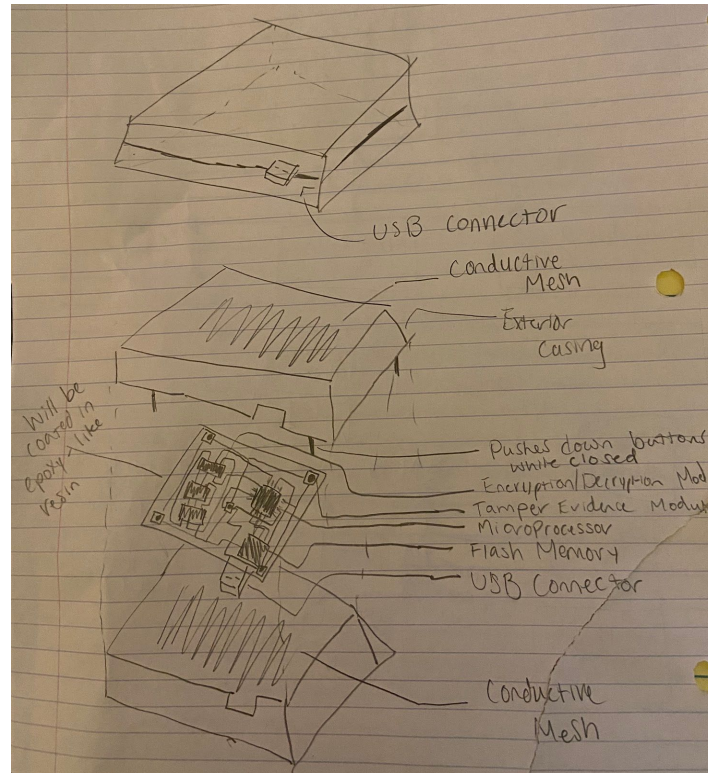 USB Connector
Conductive
Mesh
Exterior
Casing
Will be
coated in
epoxy-like
resin
Pushes down buttons
while closed
Encryption/Decryption Mod
Tamper Evidence Modu
Microprocessor
Flash Memory
USB Connector
Conductive
Mesh